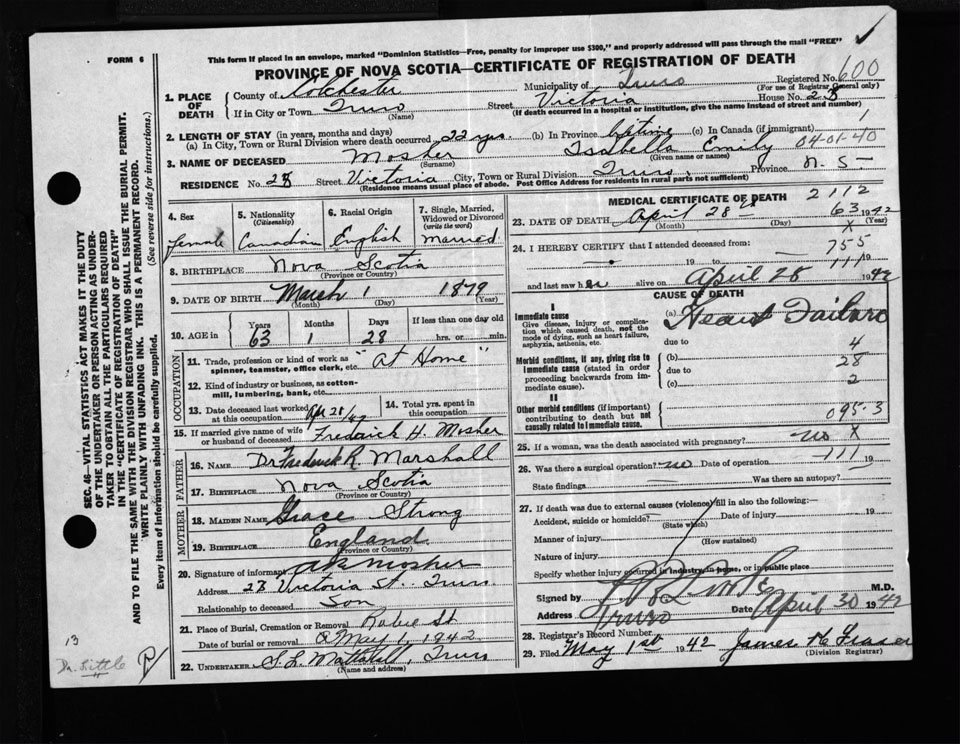 FORM 6
This form if placed in an envelope, marked "Dominion Statistics—Free, penalty for improper use $300," and properly addressed will pass through the mail "FREE"
PROVINCE OF NOVA SCOTIA—CERTIFICATE OF REGISTRATION OF DEATH
Registered No. 600
(For use of Registrar General only)
1. PLACE OF DEATH
County of Colchester Municipality of Truro
If in City or Town Truro Street Victoria House No. 23
(Name) (If death occurred in a hospital or institution, give the name instead of street and number)
2. LENGTH OF STAY (in years, months and days)
(a) In City, Town or Rural Division where death occurred 22 yrs. (b) In Province lifetime (c) In Canada (if immigrant) 1
04-01-40
3. NAME OF DECEASED Mosher Isabella Emily
(Surname) (Given name or names)
RESIDENCE No. 23 Street Victoria City, Town or Rural Division Truro, Province N.S—
(Residence means usual place of abode. Post Office Address for residents in rural parts not sufficient)
4. Sex
female
5. Nationality
(Citizenship)
Canadian
6. Racial Origin
English
7. Single, Married, Widowed or Divorced
(write the word)
married
8. BIRTHPLACE Nova Scotia
(Province or Country)
9. DATE OF BIRTH March 1 1879
(Month) (Day) (Year)
10. AGE in
Years Months Days If less than one day old
63 1 28 hrs. or min.
OCCUPATION
11. Trade, profession or kind of work as spinner, teamster, office clerk, etc. "At Home"
12. Kind of industry or business, as cotton-mill, lumbering, bank, etc.
13. Date deceased last worked at this occupation Apr 28/42
14. Total yrs. spent in this occupation
15. If married give name of wife or husband of deceased Frederick H. Mosher
FATHER
16. NAME Dr Frederick R. Marshall
17. BIRTHPLACE Nova Scotia
(Province or Country)
MOTHER
18. MAIDEN NAME Grace Strong
19. BIRTHPLACE England
(Province or Country)
20. Signature of informant Mosher
Address 23 Victoria St. Truro
Relationship to deceased Son
21. Place of Burial, Cremation or Removal Robie St
Date of burial or removal May 1, 1942
22. UNDERTAKER Truro
(Name and address)
MEDICAL CERTIFICATE OF DEATH
2112
23. DATE OF DEATH April 28th 1942
63
(Month) (Day) (Year)
X
24. I HEREBY CERTIFY that I attended deceased from:
755
— 19 to — 19
111
and last saw her alive on April 28 1942
CAUSE OF DEATH
I
Immediate cause
Give disease, injury or complication which caused death, not the mode of dying, such as heart failure, asphyxia, asthenia, etc.
(a) Heart Failure
due to 4
Morbid conditions, if any, giving rise to immediate cause (stated in order proceeding backwards from immediate cause).
(b) 28
due to
(c) 2
II
Other morbid conditions (if important) contributing to death but not causally related to immediate cause.
095.3
25. If a woman, was the death associated with pregnancy? no X
111
26. Was there a surgical operation? no Date of operation 19
State findings Was there an autopsy?
27. If death was due to external causes (violence) fill in also the following:
Accident, suicide or homicide? Date of injury 19
(State which)
Manner of injury
(How sustained)
Nature of injury
Specify whether injury occurred in industry, in home, or in public place
Signed by M.D.
Address Truro Date April 30 1942
28. Registrar's Record Number
29. Filed May 1st 1942 James H Fraser
(Division Registrar)
SEC. 46—VITAL STATISTICS ACT MAKES IT THE DUTY OF THE UNDERTAKER OR PERSON ACTING AS UNDERTAKER TO OBTAIN ALL THE PARTICULARS REQUIRED IN THE "CERTIFICATE OF REGISTRATION OF DEATH"
AND TO FILE THE SAME WITH THE DIVISION REGISTRAR WHO SHALL ISSUE THE BURIAL PERMIT.
WRITE PLAINLY WITH UNFADING INK. THIS IS A PERMANENT RECORD.
Every item of information should be carefully supplied. (See reverse side for instructions.)
13
Dr. Little
R